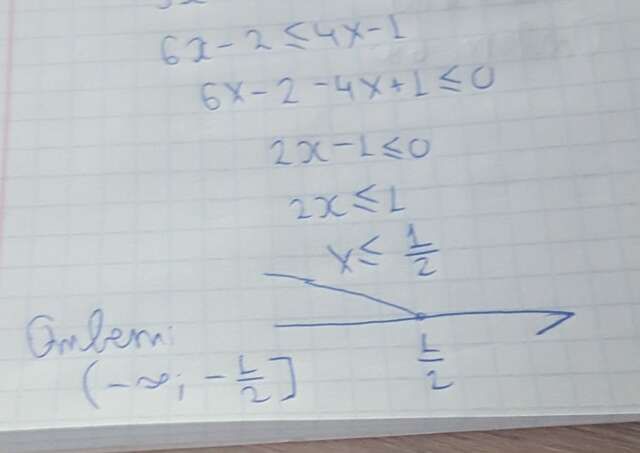 6x - 2 ≤ 4x - 1
6x - 2 - 4x + 1 ≤ 0
2x - 1 ≤ 0
2x ≤ 1
x ≤ 1/2
1/2
Ответ:
(-∞; -1/2]